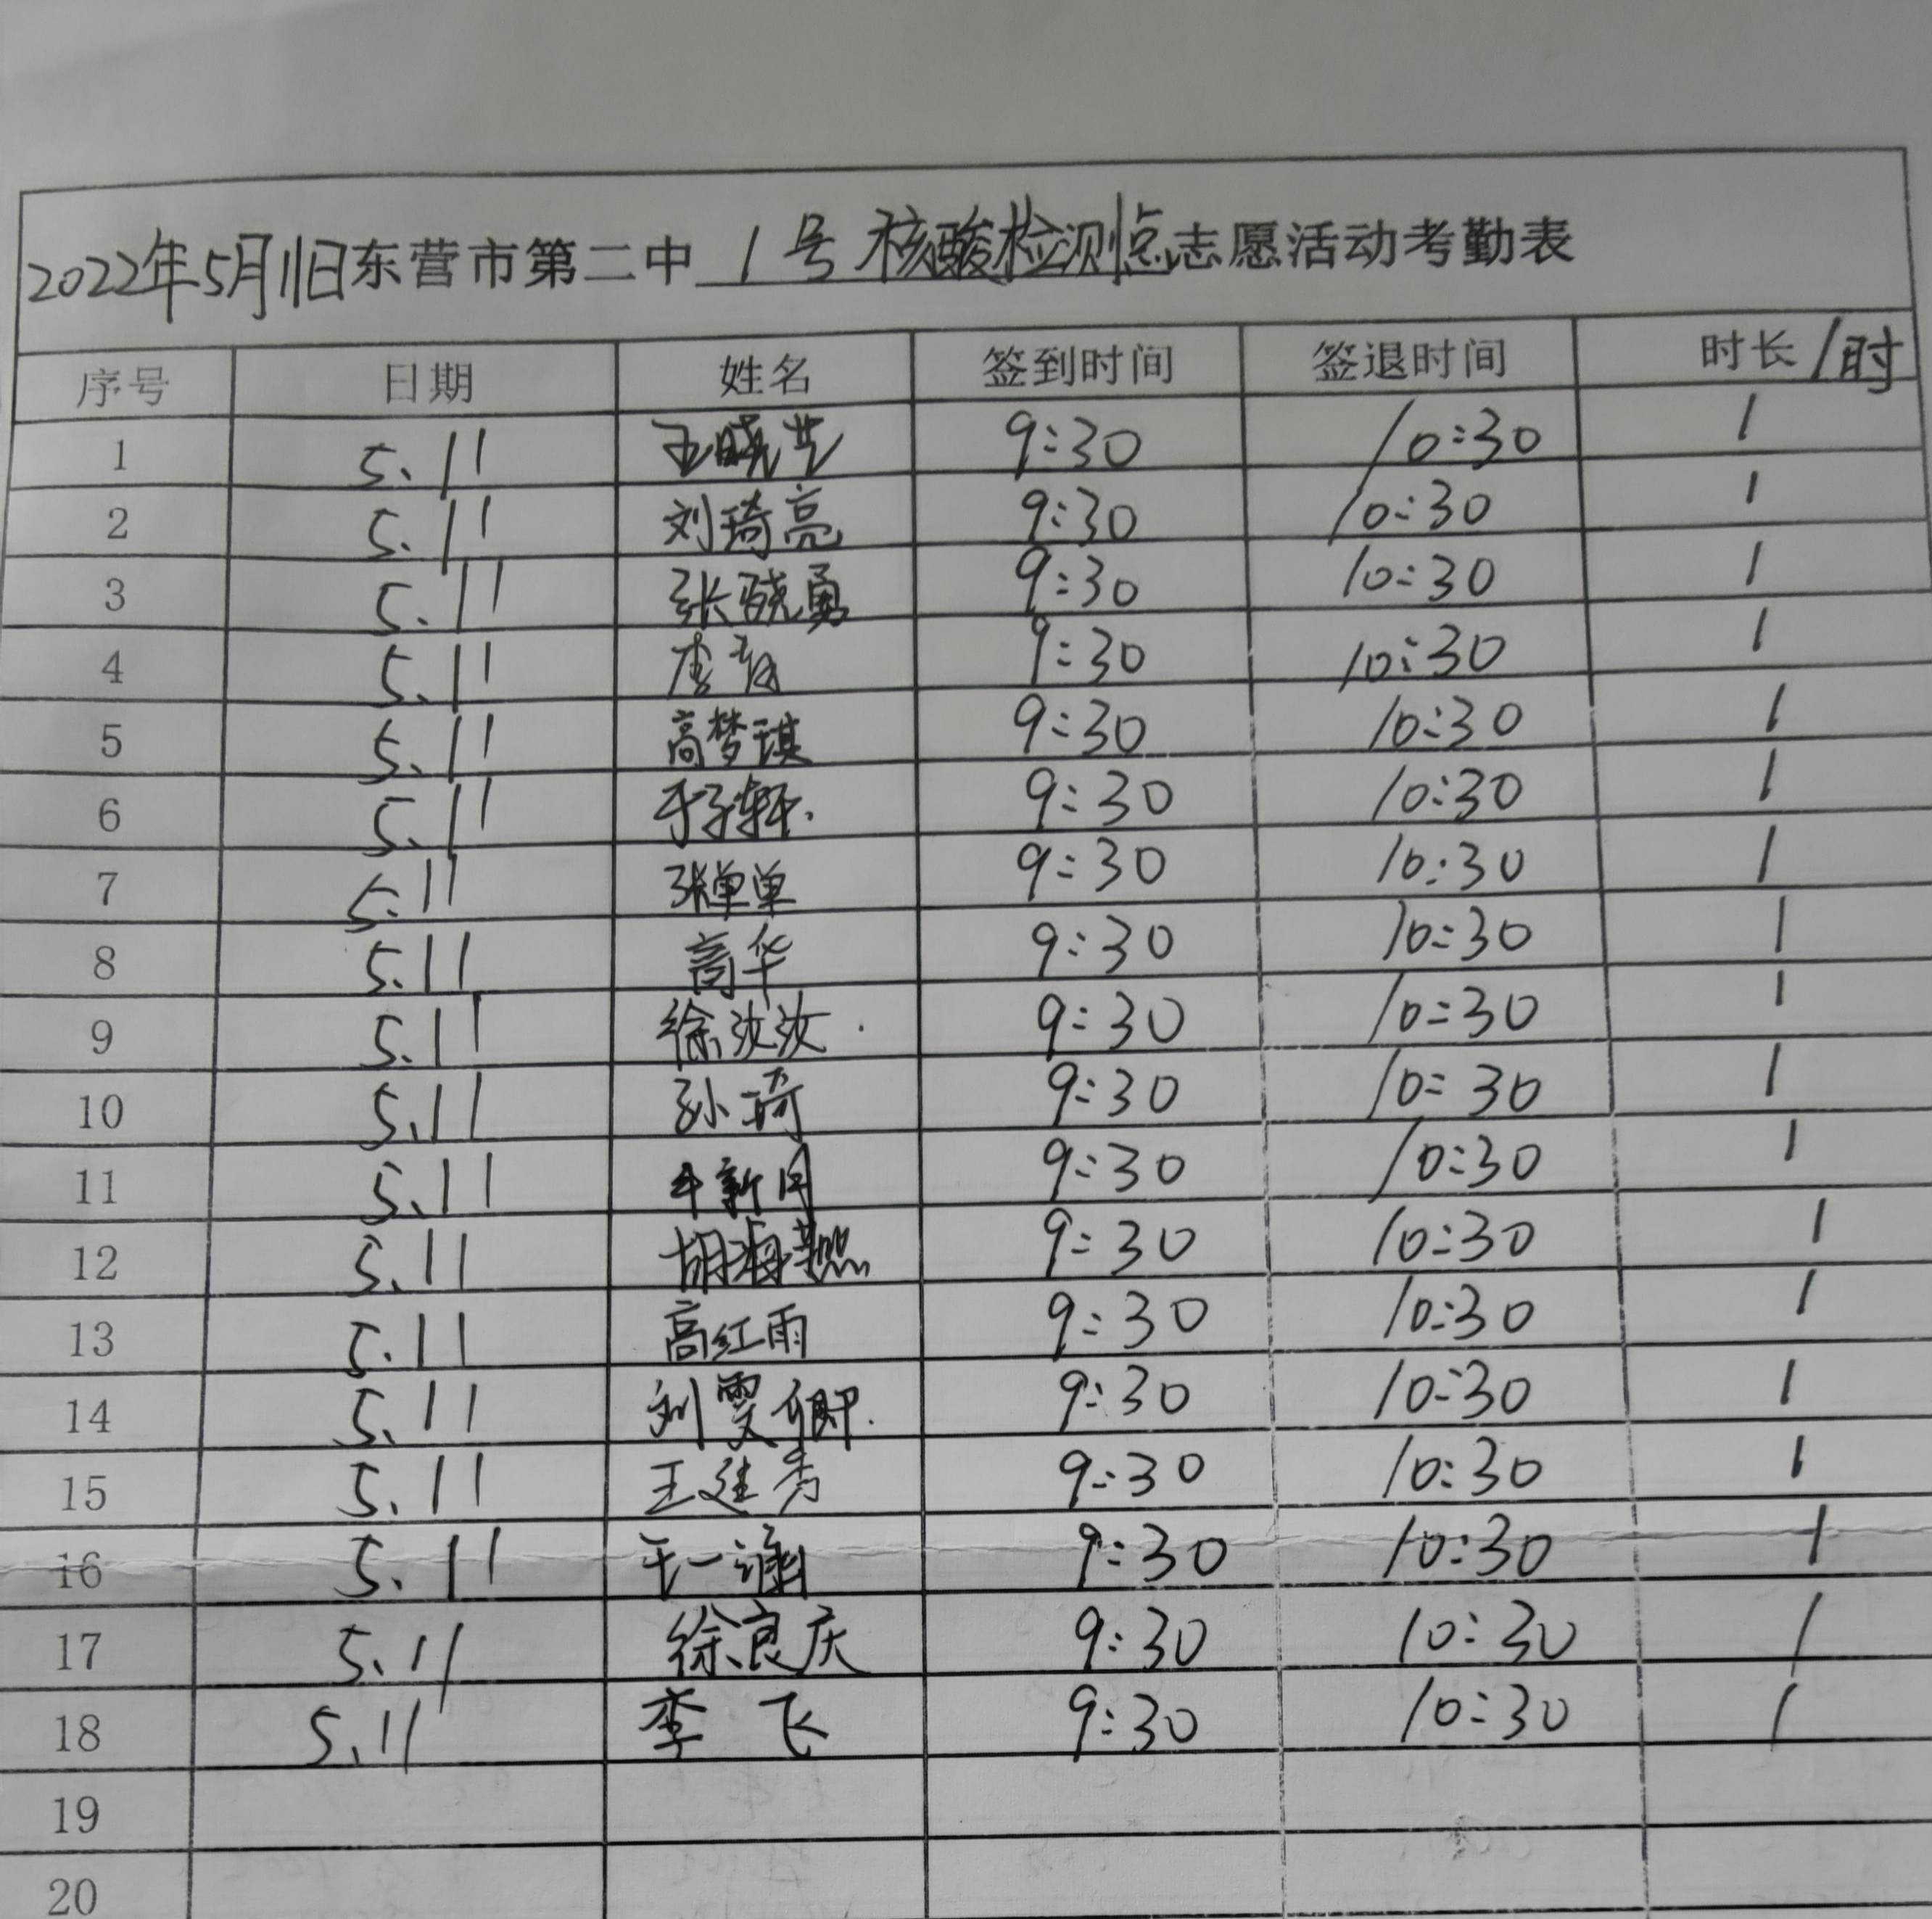 2022年5月11日东营市第二中1号核酸检测点志愿活动考勤表
序号 日期 姓名 签到时间 签退时间 时长/时
1 5.11 王晓芳 9:30 10:30 1
2 5.11 刘琦亮 9:30 10:30 1
3 5.11 张晓勇 9:30 10:30 1
4 5.11 李 9:30 10:30 1
5 5.11 高梦琪 9:30 10:30 1
6 5.11 于子轩. 9:30 10:30 1
7 5.11 张单单 9:30 10:30 1
8 5.11 高华 9:30 10:30 1
9 5.11 徐汝汝 9:30 10:30 1
10 5.11 孙琦 9:30 10:30 1
11 5.11 牛新月 9:30 10:30 1
12 5.11 胡海燕 9:30 10:30 1
13 5.11 高红雨 9:30 10:30 1
14 5.11 刘雯卿. 9:30 10:30 1
15 5.11 王建秀 9:30 10:30 1
16 5.11 9:30 10:30 1
17 5.11 徐良庆 9:30 10:30 1
18 5.11 李飞 9:30 10:30 1
19
20